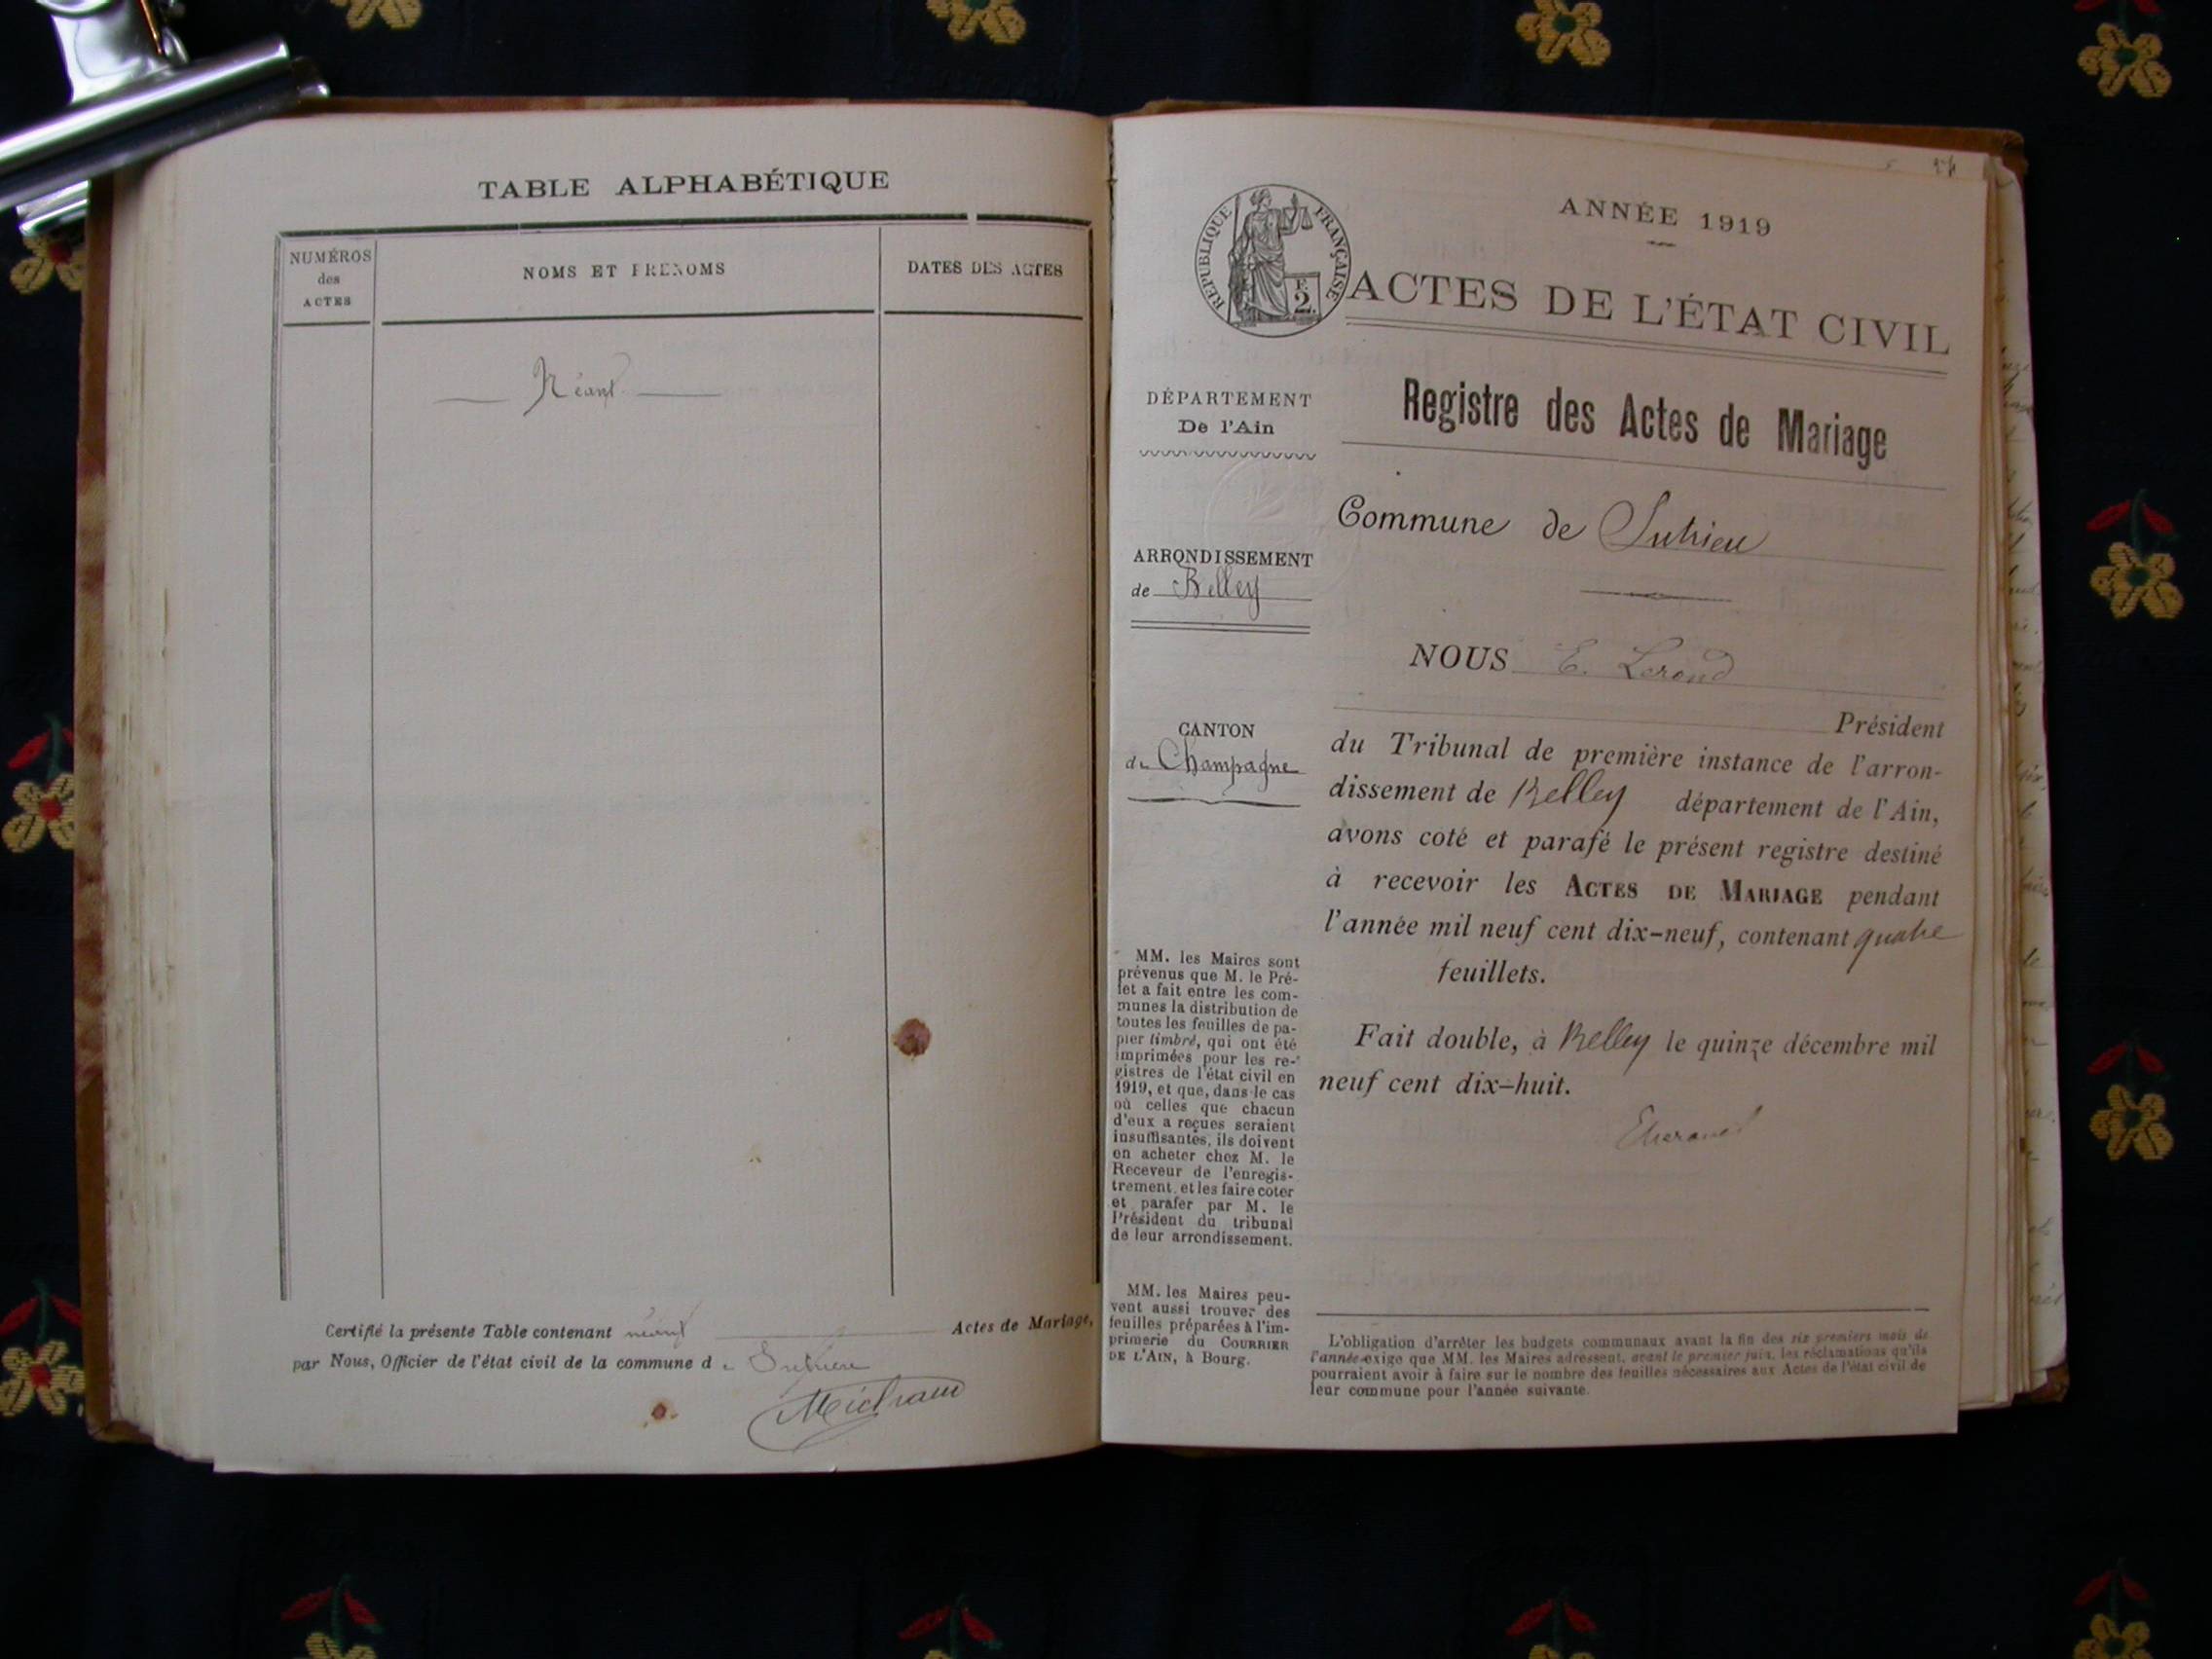 TABLE ALPHABÉTIQUE
NUMÉROS
des
ACTES
NOMS ET PRÉNOMS
DATES DES ACTES
Néant
Certifié la présente Table contenant néant Actes de Mariage,
par Nous, Officier de l'état civil de la commune de Sutrieu
ANNÉE 1919
RÉPUBLIQUE FRANÇAISE
2
ACTES DE L'ÉTAT CIVIL
DÉPARTEMENT
De l'Ain
Registre des Actes de Mariage
Commune de Sutrieu
ARRONDISSEMENT
de Belley
NOUS E. Lerond
CANTON
de Champagne
Président
du Tribunal de première instance de l'arron-
dissement de Belley département de l'Ain,
avons coté et parafé le présent registre destiné
à recevoir les ACTES DE MARIAGE pendant
l'année mil neuf cent dix-neuf, contenant quatre
feuillets.
Fait double, à Belley le quinze décembre mil
neuf cent dix-huit.
MM. les Maires sont
prévenus que M. le Pré-
fet a fait entre les com-
munes la distribution de
toutes les feuilles de pa-
pier timbré, qui ont été
imprimées pour les re-
gistres de l'état civil en
1919, et que, dans le cas
où celles que chacun
d'eux a reçues seraient
insuffisantes, ils doivent
en acheter chez M. le
Receveur de l'enregis-
trement, et les faire coter
et parafer par M. le
Président du tribunal
de leur arrondissement.
MM. les Maires peu-
vent aussi trouver des
feuilles préparées à l'im-
primerie du COURRIER
DE L'AIN, à Bourg.
L'obligation d'arrêter les budgets communaux avant la fin des six premiers mois de
l'année exige que MM. les Maires adressent, avant le premier juin, les réclamations qu'ils
pourraient avoir à faire sur le nombre des feuilles nécessaires aux Actes de l'état civil de
leur commune pour l'année suivante.